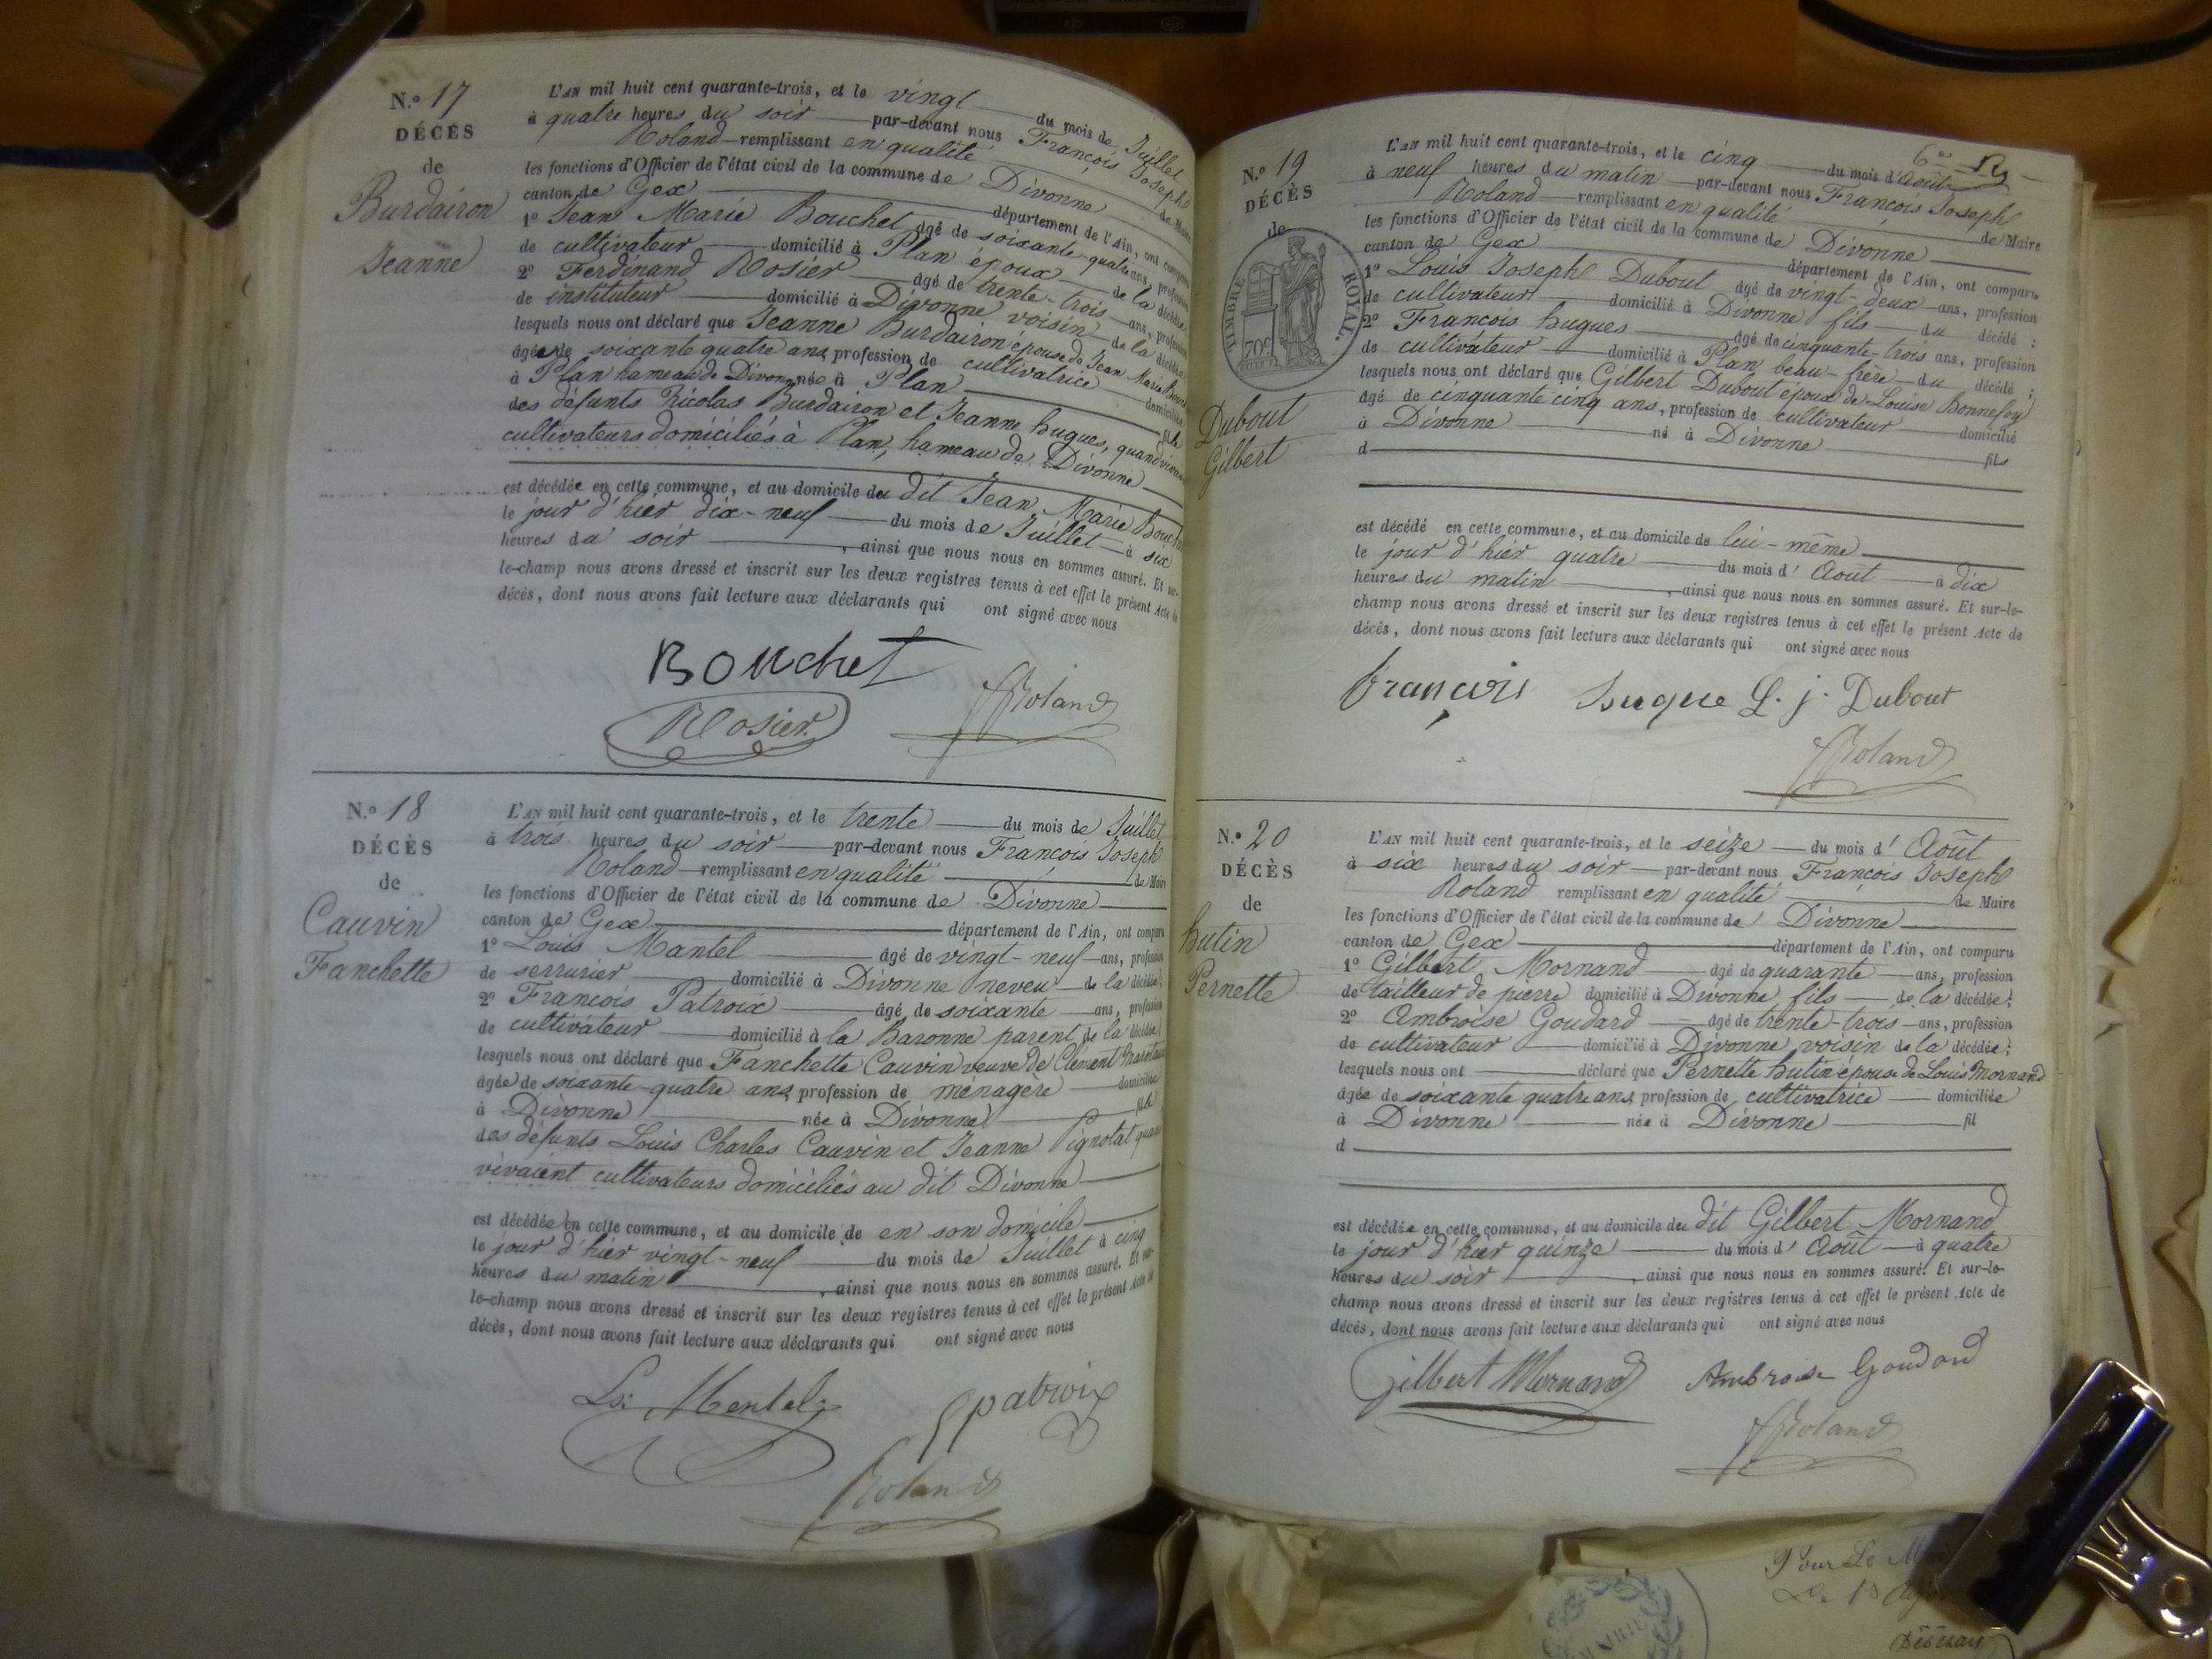 N.o 17
DÉCÈS
de
Burdairon
Jeanne
L'AN mil huit cent quarante-trois, et le vingt du mois de Juillet
à quatre heures du soir par-devant nous François Joseph
Roland remplissant en qualité de Maire
les fonctions d'Officier de l'état civil de la commune de Divonne
canton de Gex département de l'Ain, ont comparu
1o Jean Marie Bouchet âgé de soixante-quatre ans, profession
de cultivateur domicilié à Plan époux de la décédée
2o Ferdinand Rosier âgé de trente-trois ans, profession
de instituteur domicilié à Divonne voisin de la décédée
lesquels nous ont déclaré que Jeanne Burdairon épouse de Jean Marie Bouchet
âgée de soixante quatre ans, profession de cultivatrice domiciliée
à Plan hameau de Divonne née à Plan fille
des défunts Nicolas Burdairon et Jeanne hugues, quand vivaient
cultivateurs domiciliés à Plan, hameau de Divonne
est décédée en cette commune, et au domicile du dit Jean Marie Bouchet
le jour d'hier dix-neuf du mois de Juillet à six
heures du soir, ainsi que nous nous en sommes assuré. Et sur-
le-champ nous avons dressé et inscrit sur les deux registres tenus à cet effet le présent Acte de
décès, dont nous avons fait lecture aux déclarants qui ont signé avec nous
Bouchet
Rosier
Roland
N.o 18
DÉCÈS
de
Cauvin
Fanchette
L'AN mil huit cent quarante-trois, et le trente du mois de Juillet
à trois heures du soir par-devant nous François Joseph
Roland remplissant en qualité de Maire
les fonctions d'Officier de l'état civil de la commune de Divonne
canton de Gex département de l'Ain, ont comparu
1o Louis Mantel âgé de vingt-neuf ans, profession
de serrurier domicilié à Divonne neveu de la décédée;
2o François Patroix âgé de soixante ans, profession
de cultivateur domicilié à la Baronne parent de la décédée;
lesquels nous ont déclaré que Fanchette Cauvin veuve de Clément
âgée de soixante-quatre ans, profession de ménagère domiciliée
à Divonne née à Divonne fille
des défunts Louis Charles Cauvin et Jeanne Pignolat quand
vivaient cultivateurs domiciliés au dit Divonne
est décédée en cette commune, et au domicile de en son domicile
le jour d'hier vingt-neuf du mois de Juillet à cinq
heures du matin, ainsi que nous nous en sommes assuré. Et sur-
le-champ nous avons dressé et inscrit sur les deux registres tenus à cet effet le présent Acte de
décès, dont nous avons fait lecture aux déclarants qui ont signé avec nous
Ls. Mentel
patroix
Roland
6e
N.o 19
DÉCÈS
de
TIMBRE ROYAL.
70c
Dubout
Gilbert
L'AN mil huit cent quarante-trois, et le cinq du mois d'Août
à neuf heures du matin par-devant nous François Joseph
Roland remplissant en qualité de Maire
les fonctions d'Officier de l'état civil de la commune de Divonne
canton de Gex département de l'Ain, ont comparu
1o Louis Joseph Dubout âgé de vingt-deux ans, profession
de cultivateur domicilié à Divonne fils du décédé;
2o François hugues âgé de cinquante-trois ans, profession
de cultivateur domicilié à Plan beau-frère du décédé;
lesquels nous ont déclaré que Gilbert Dubout époux de Louise Bonnefoy
âgé de cinquante cinq ans, profession de cultivateur domicilié
à Divonne né à Divonne fils
d
est décédé en cette commune, et au domicile de lui-même
le jour d'hier quatre du mois d'Août à dix
heures du matin, ainsi que nous nous en sommes assuré. Et sur-le-
champ nous avons dressé et inscrit sur les deux registres tenus à cet effet le présent Acte de
décès, dont nous avons fait lecture aux déclarants qui ont signé avec nous
françois hugue L. j. Dubout
Roland
N.o 20
DÉCÈS
de
hutin
Pernette
L'AN mil huit cent quarante-trois, et le seize du mois d'Août
à six heures du soir par-devant nous François Joseph
Roland remplissant en qualité de Maire
les fonctions d'Officier de l'état civil de la commune de Divonne
canton de Gex département de l'Ain, ont comparu
1o Gilbert Mornand âgé de quarante ans, profession
de tailleur de pierre domicilié à Divonne fils de la décédée;
2o Ambroise Goudard âgé de trente-trois ans, profession
de cultivateur domicilié à Divonne voisin de la décédée;
lesquels nous ont déclaré que Pernette hutin épouse de Louis Mornand
âgée de soixante quatre ans, profession de cultivatrice domiciliée
à Divonne née à Divonne fil
d
est décédée en cette commune, et au domicile du dit Gilbert Mornand
le jour d'hier quinze du mois d'Août à quatre
heures du soir, ainsi que nous nous en sommes assuré. Et sur-le-
champ nous avons dressé et inscrit sur les deux registres tenus à cet effet le présent Acte de
décès, dont nous avons fait lecture aux déclarants qui ont signé avec nous
Gilbert Mornand Ambroise Goudard
Roland
Pour Le